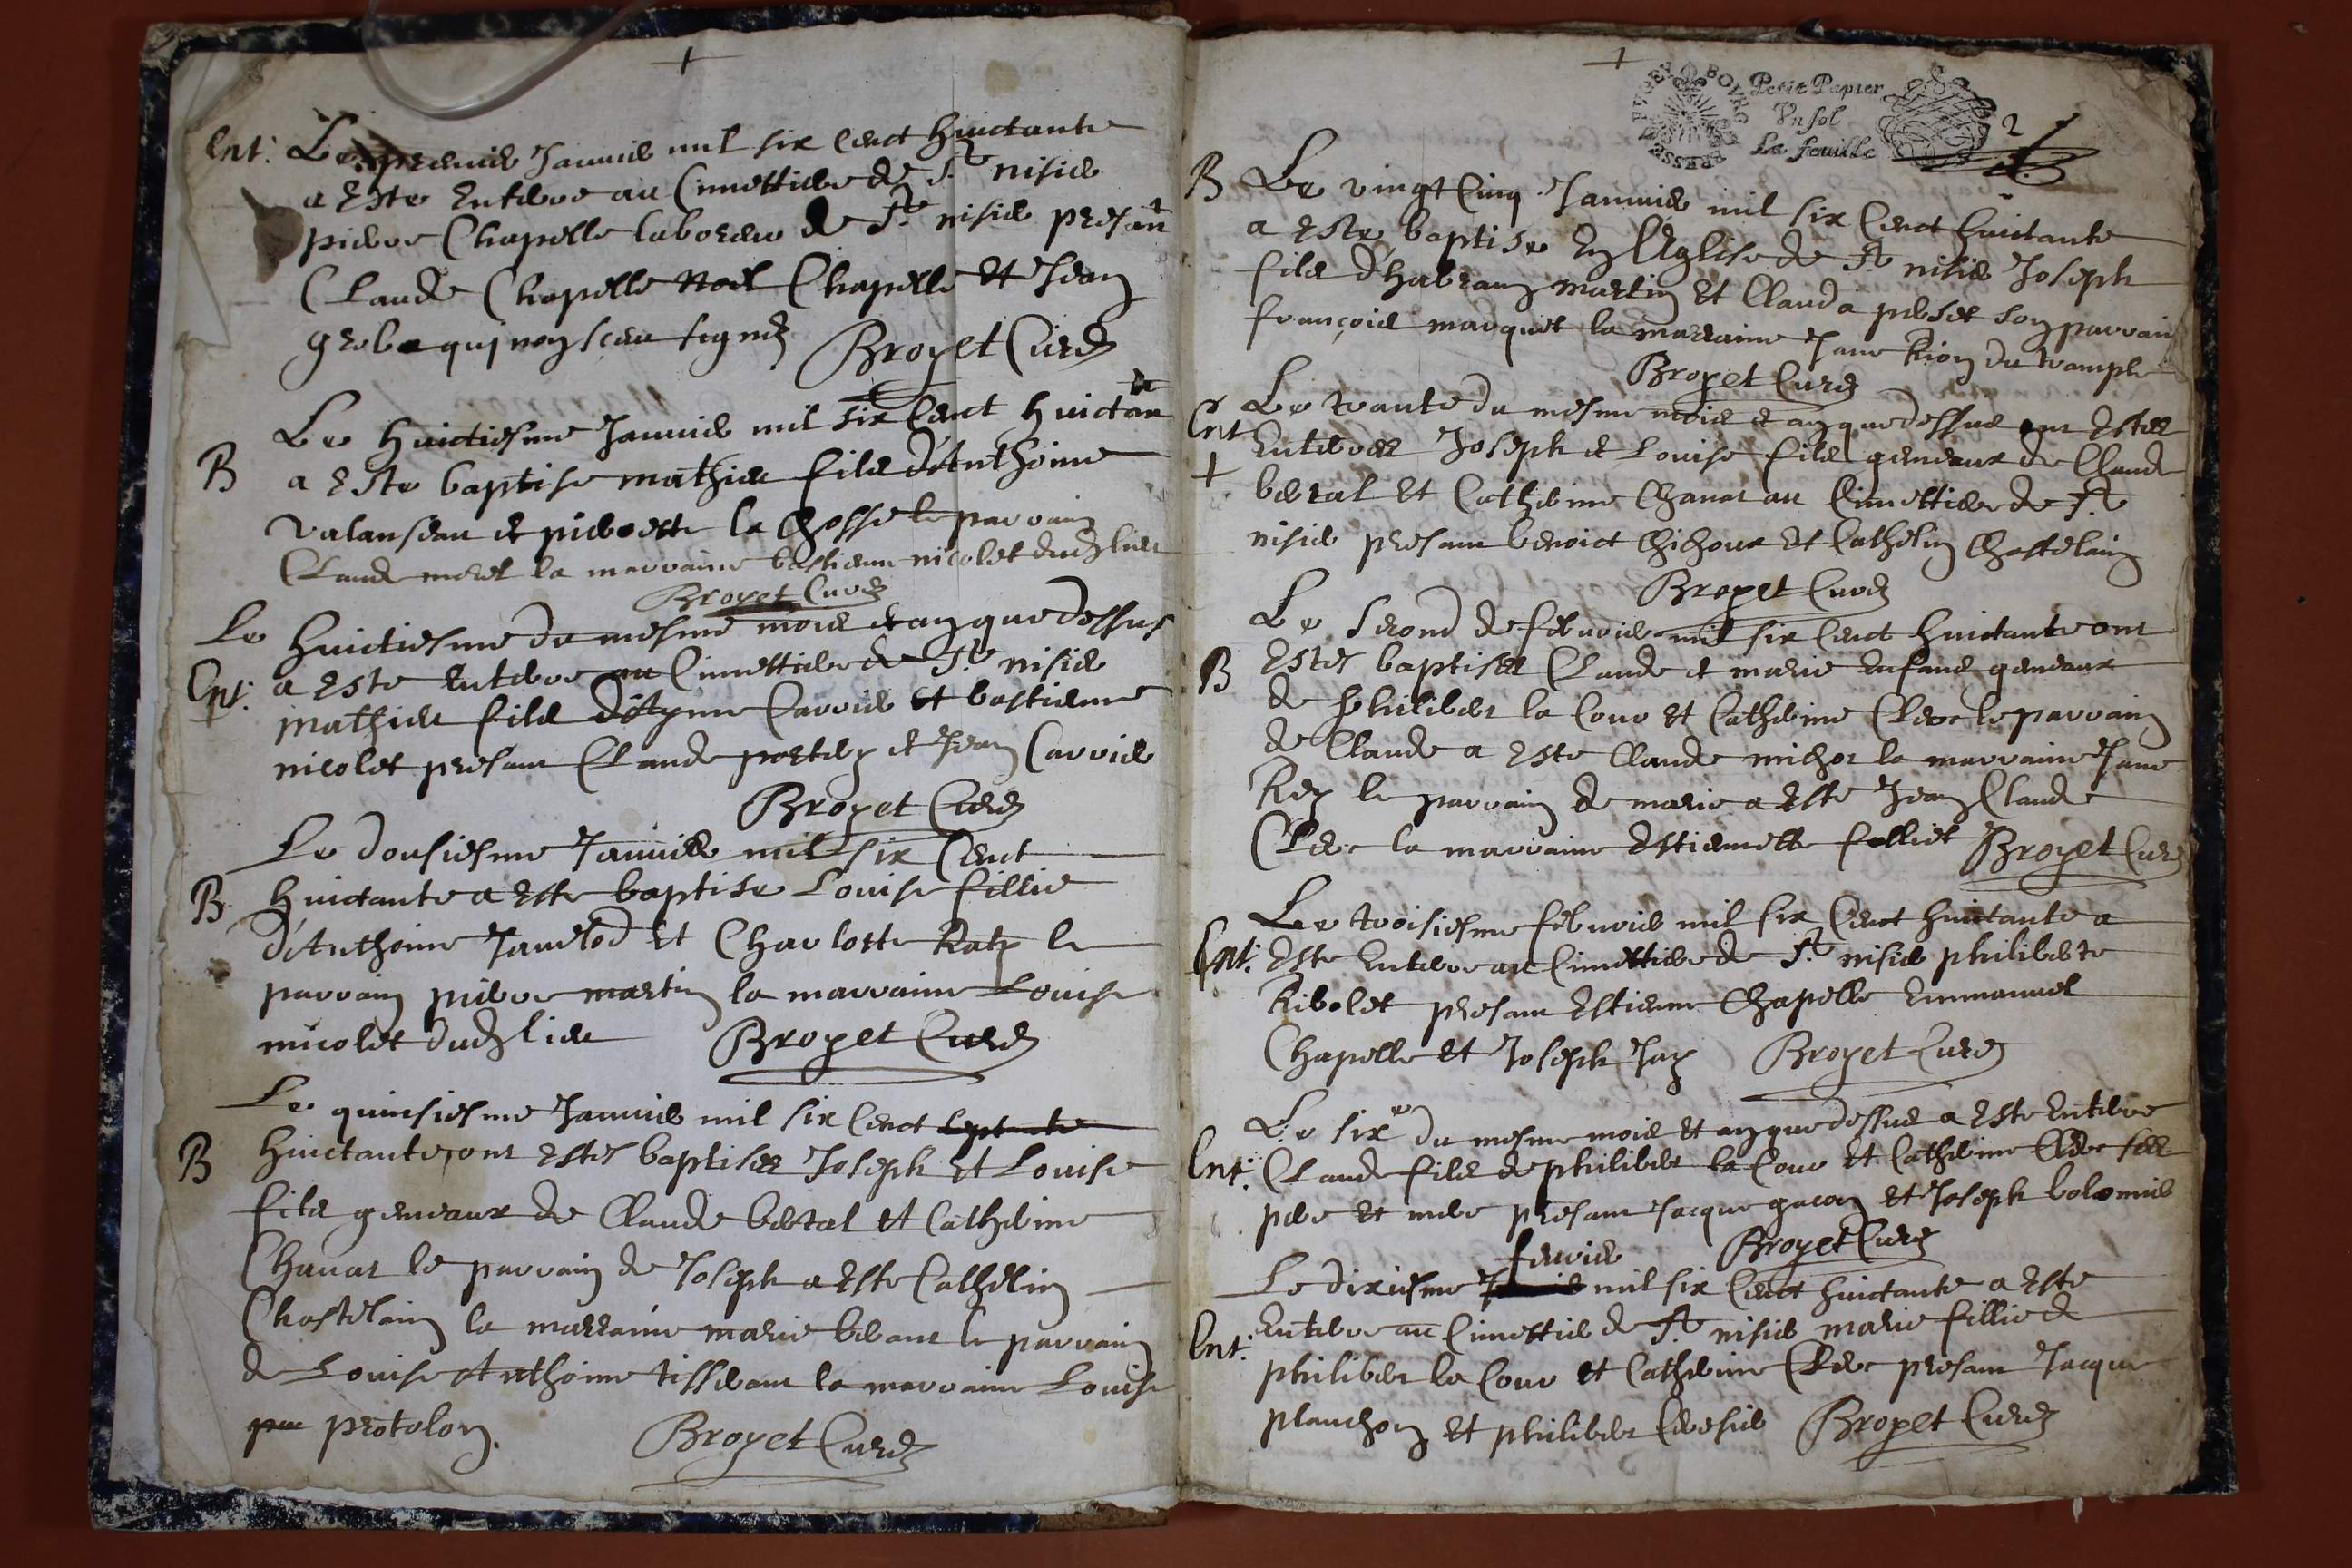 +
Ent. Le premier Janvier mil six cent huictante
a este enterre au Cimettiere de St nisier
pierre Chapelle laboreur de St nisier presant
Claude Chapelle Noel Chapelle et Jean
qui noy sceu signer Broyet Curé
Le huictiesme Janvier mil six cent huictante
B a este baptise mathieu fils d'Anthoine
valanseau et pierrette la Chosse le parrain
Claude morel la marraine bastienne nicolet dud lieu
Broyet Curé
Le huictiesme du mesme mois et an que dessus
Ent. a este enterre au Cimettiere de St nisier
mathieu fils d'Etynne Carrier et bastienne
nicolet presant Claude et Jean Carrier
Broyet Curé
Le dousiesme Janvier mil six cent
B huictante a este baptise Louise fillie
d'Anthoine Janelod et Charlotte Raty le
parrain pierre martin la marraine Louise
nicolet dud lieu Broyet Curé
Le quinsiesme Janvier mil six cent septante
B huictante ont estes baptises Joseph et Louise
fils gemeaux de Claude beral et Catherine
Chanar le parrain de Joseph a este Cathelin
Chastelain la marraine marie le parrain
de Louise Anthoine la marraine Louise
protolon Broyet Curé
+
BRESSE BVGEY BOVRG
Petit Papier
Vn sol
La feuille
2
B Le vingt cinq Janvier mil six cent huictante
a este baptise en l'Eglise de St nisier Joseph
fils d'habram martin et Clauda son parrain
françois marquet la marraine Jane Rion du
Broyet Curé
Le trante du mesme mois et an que dessus ont estes
Ent enterres Joseph et Louise fils gemeaux de Claude
+ beral et Catherine Chanar au Cimettiere de St
nisier presant benoict Chichoux et Cathelin Chastelain
Broyet Curé
Le second de febvrier mil six cent huictante ont
B estes baptises Claude et marie enfans gemeaux
de philibert la Cour et Catherine Clerc le parrain
de Claude a este Claude michot la marraine Jane
Rey le parrain de marie a este Jean Claude
Clerc la marraine Estiennette folliet Broyet Curé
Le troisiesme febvrier mil six cent huictante a
Ent. este enterre au Cimettiere de St nisier philiberte
Ribolet presant Estienne Chapelle Emmanuel
Chapelle et Joseph Jay Broyet Curé
Le sixe du mesme mois et an que dessus a este enterre
Ent. Claude fils de philibert la Cour et Catherine Clerc ses
pere et mere presant Jacque gacon et Joseph bolomier
Broyet Curé
fevrier
Le dixiesme mil six cent huictante a este
Ent. enterre au Cimettier de St nisier marie fillie de
philibert la Cour et Catherine Clerc presant Jacque
planchon et philibert Broyet Curé